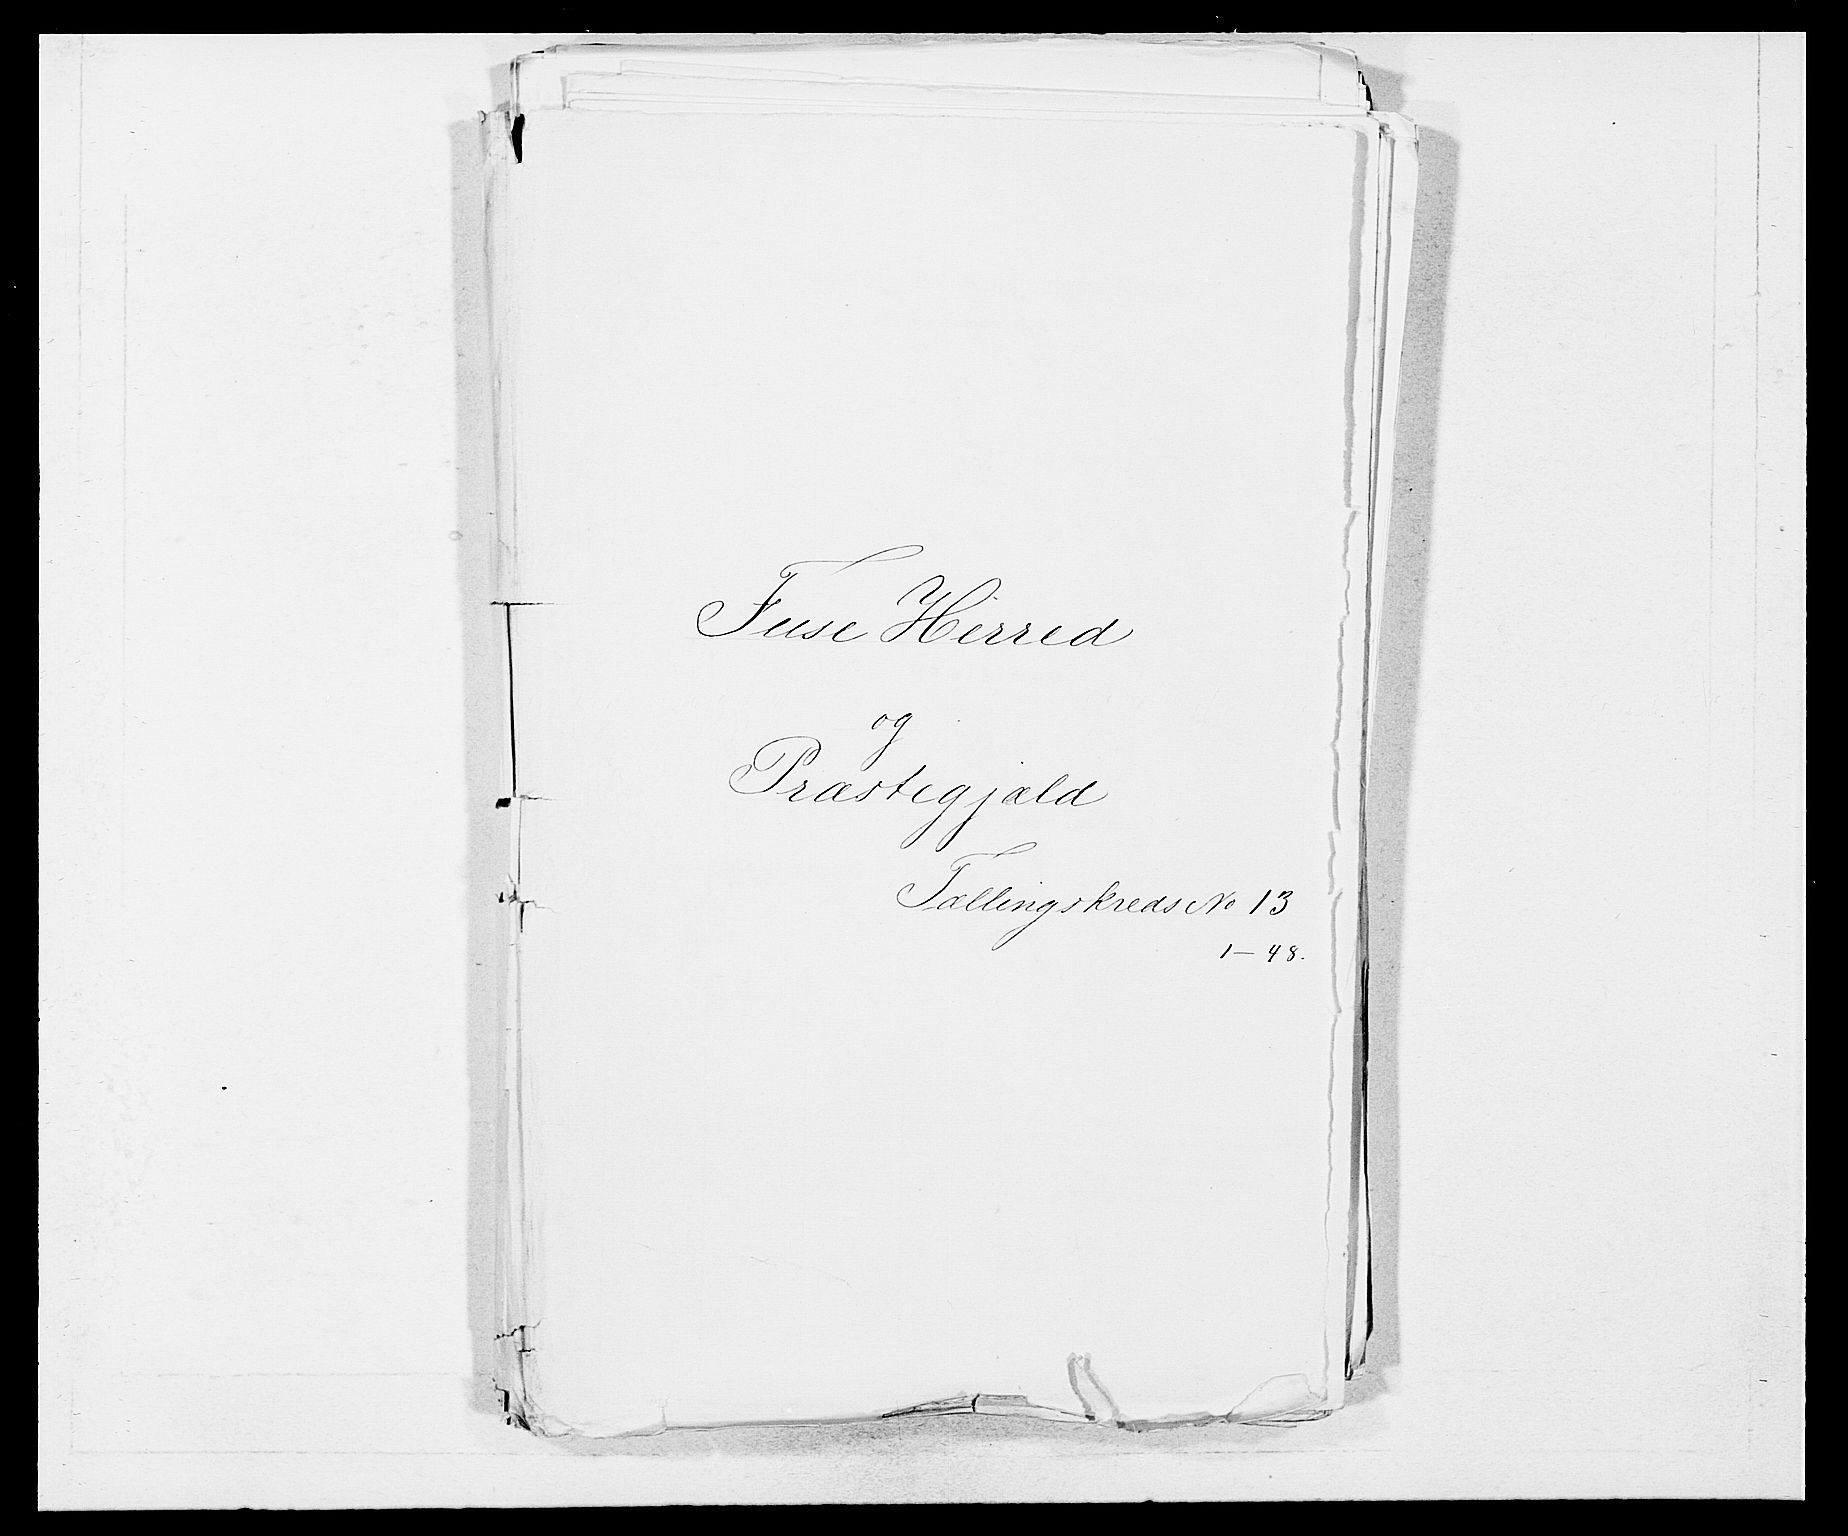 Fuse Herred
og
Præstegjæld
Tællingskreds No 13
1–48.